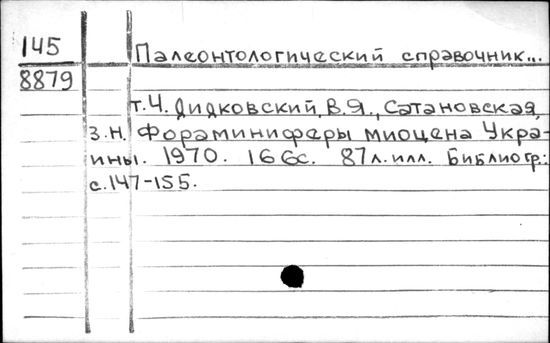 145
Палеонтологический справочник...
8879
т.Ч. Дидковский, В.Я., Сатановская,
З.Н. Фораминиферы миоцена Укра-
ины. 1970. 166с. 87л.илл. Библиогр.:
с.147-155.